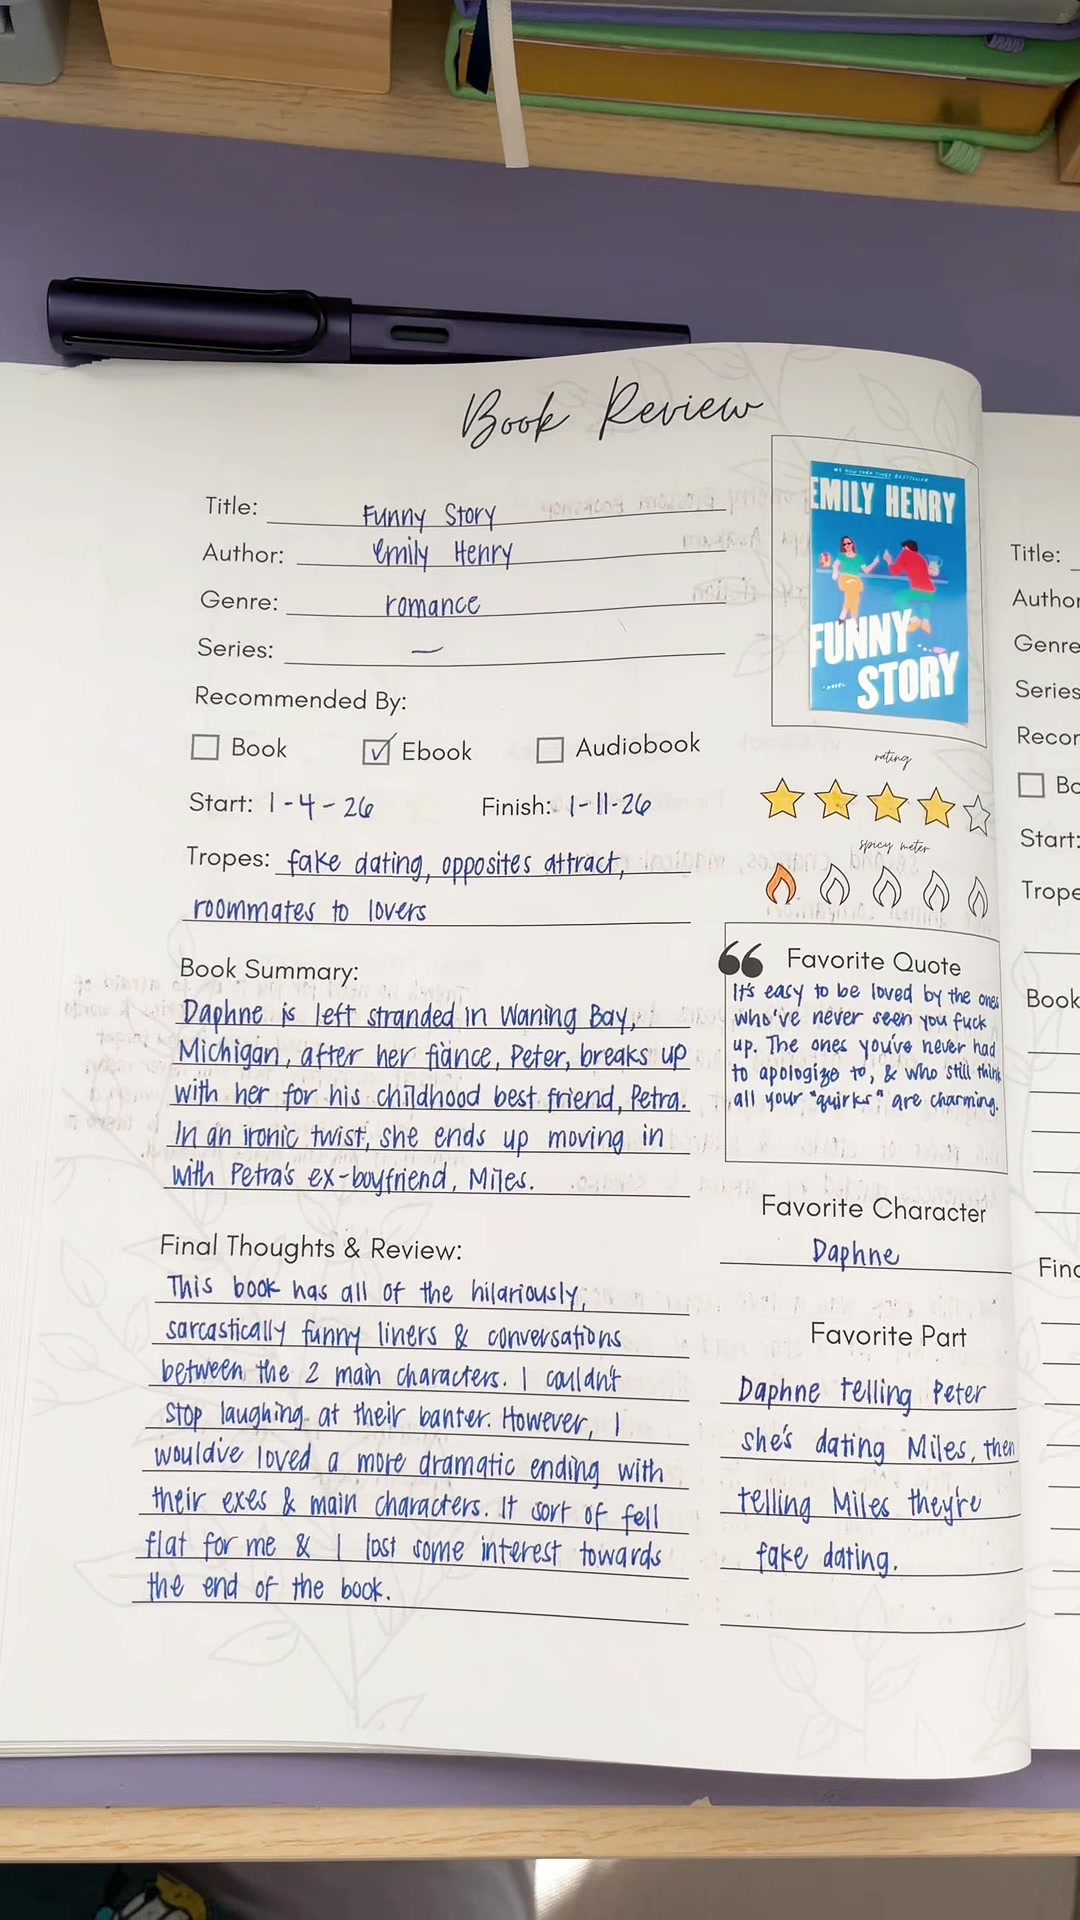 Book Review
Title: Funny Story
Author: Emily Henry
Genre: romance
Series: —
Recommended By:
Book ☑ Ebook Audiobook
Start: 1-4-26 Finish: 1-11-26
Tropes: fake dating, opposites attract,
roommates to lovers
Book Summary:
Daphne is left stranded in Waning Bay,
Michigan, after her fiance, Peter, breaks up
with her for his childhood best friend, Petra.
In an ironic twist, she ends up moving in
with Petra's ex-boyfriend, Miles.
Final Thoughts & Review:
This book has all of the hilariously,
sarcastically funny liners & conversations
between the 2 main characters. I couldn't
stop laughing at their banter. However, I
would've loved a more dramatic ending with
their exes & main characters. It sort of fell
flat for me & I lost some interest towards
the end of the book.
#1 NEW YORK TIMES BESTSELLER
EMILY HENRY
FUNNY
STORY
rating
spicy meter
Favorite Quote
It's easy to be loved by the ones
who've never seen you fuck
up. The ones you've never had
to apologize to, & who still think
all your "quirks" are charming.
Favorite Character
Daphne
Favorite Part
Daphne telling Peter
she's dating Miles, then
telling Miles they're
fake dating.
Title:
Genre
Series
Start:
Book